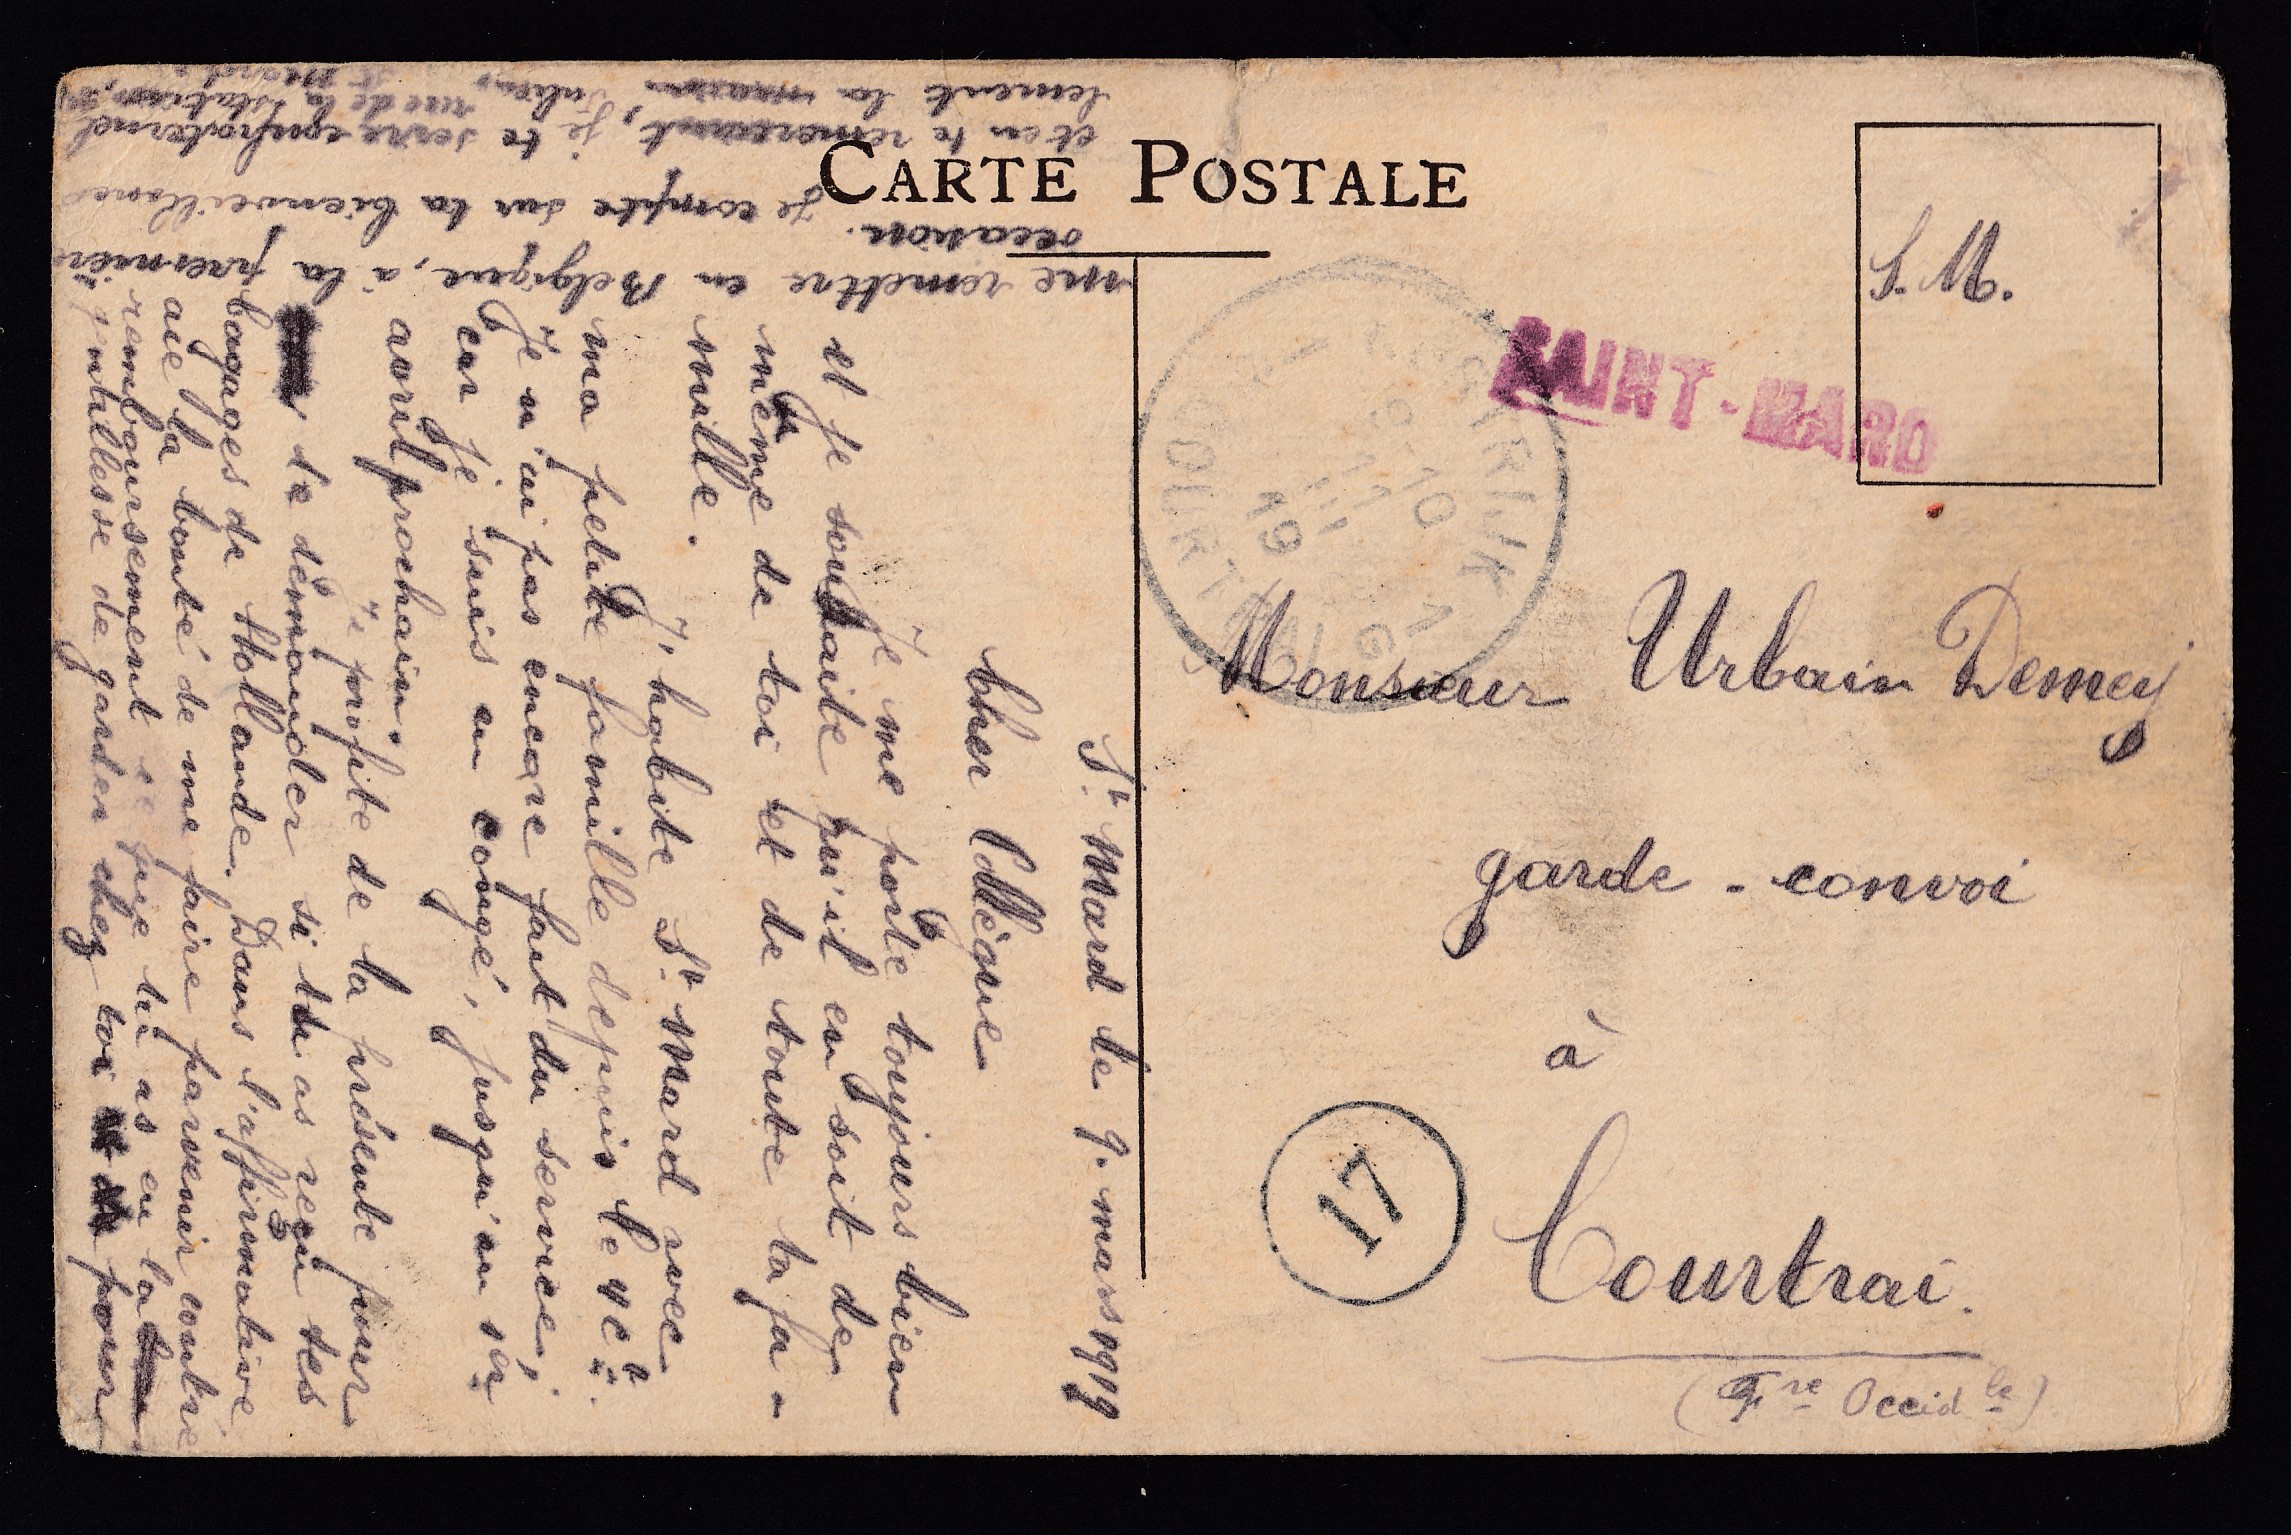 CARTE POSTALE
S.M.
SAINT-MARD
KORTRIJK 1G
9-10
11
III
19
COURTRAI 1G
Monsieur Urbain Demey
garde-convoi
à
Courtrai.
(Fre Occidle)
17
St Mard le 9. mars 1919
Cher Collègue
Je me porte toujours bien
et je souhaite qu'il en soit de
même de toi et de toute ta fa-
mille.
J'habite St. Mard avec
ma petite famille depuis le
Je n'ai pas encore fait du service,
car je suis en congé, jusqu'au 1er
avril prochain.
Je profite de la présente pour
te démander si tu as reçu tes
bagages de Hollande. Dans l'affirmative
aie la bonté de me faire parvenir contre
remboursement ce que tu as eu la
gentillesse de garder chez toi pour
me remettre en Belgique, à la première
occasion.
Je compte sur ta bienveillance
et en te remerciant, je te serre confraternel
lement la main
rue de la Station,
St Mard.